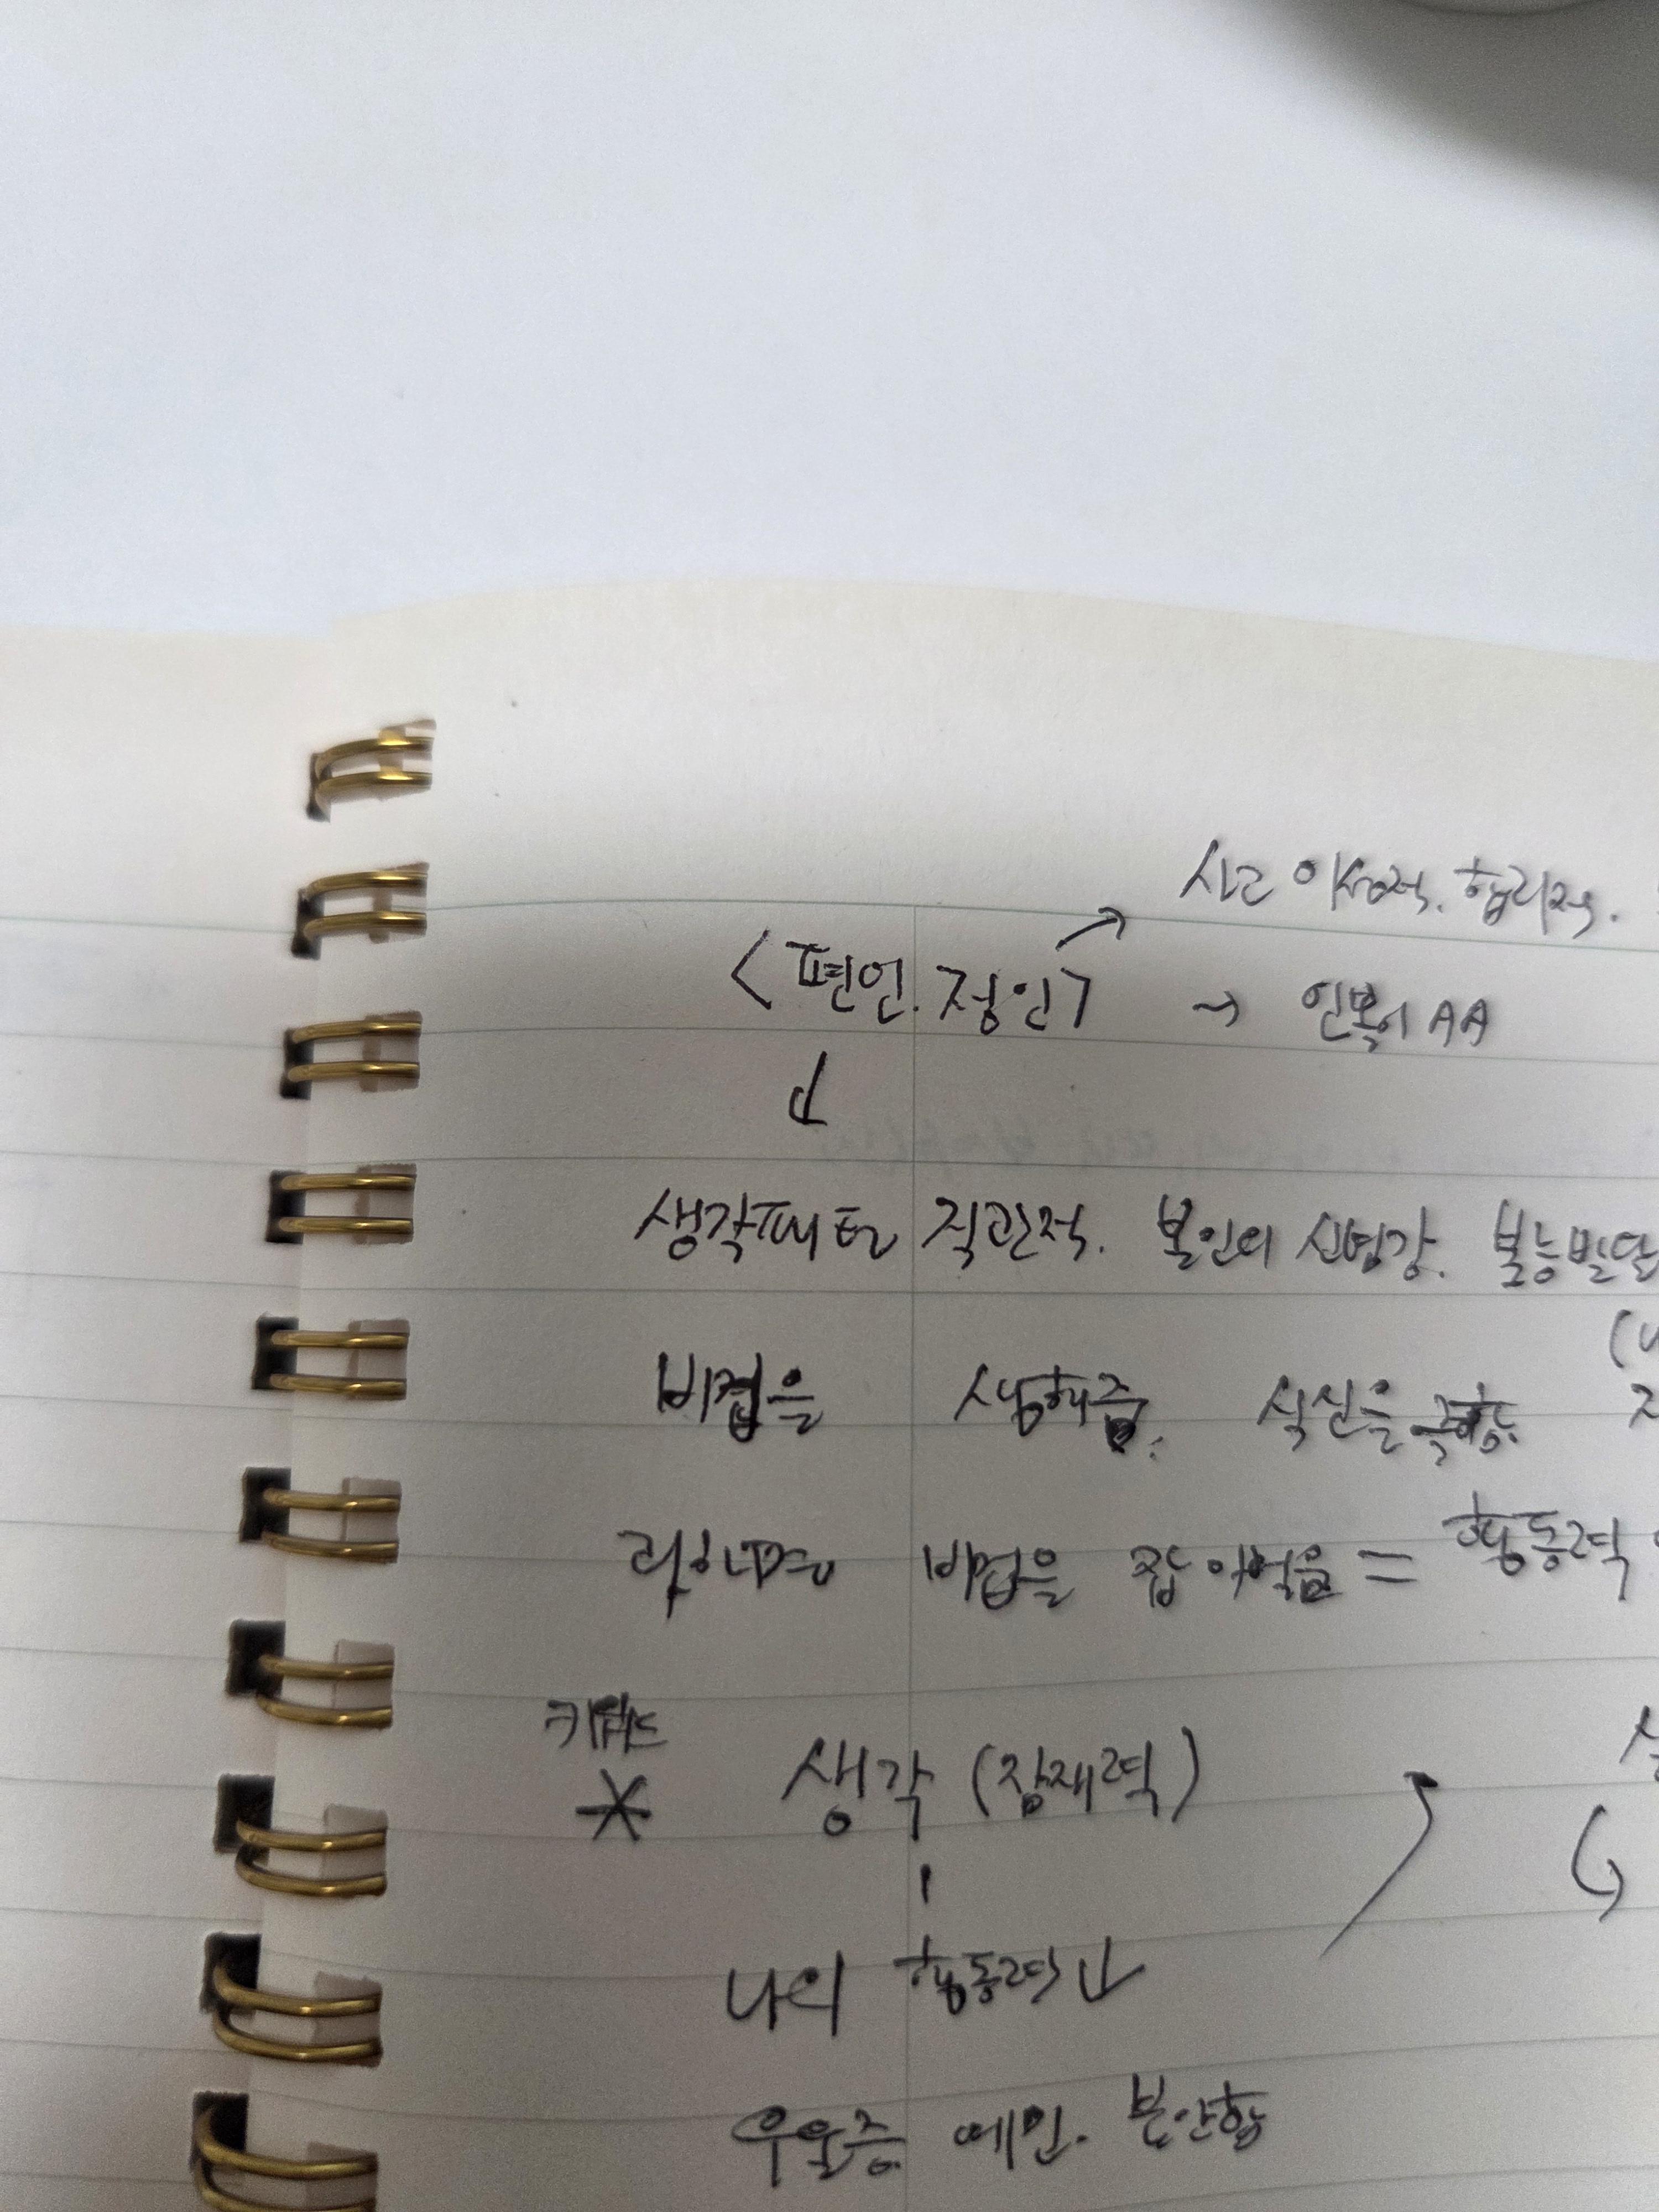 사고 이성적. 합리적.
<편인. 정인> → 인복이 AA
생각패턴 직관적. 본인의 신념강. 본능발달
비겁을 생해줌. 식신을 극함.
과하면 비겁을 잡아먹음 = 행동력
키워드
* 생각 (잠재력)
나의 행동력↓
우울증 예민. 불안함